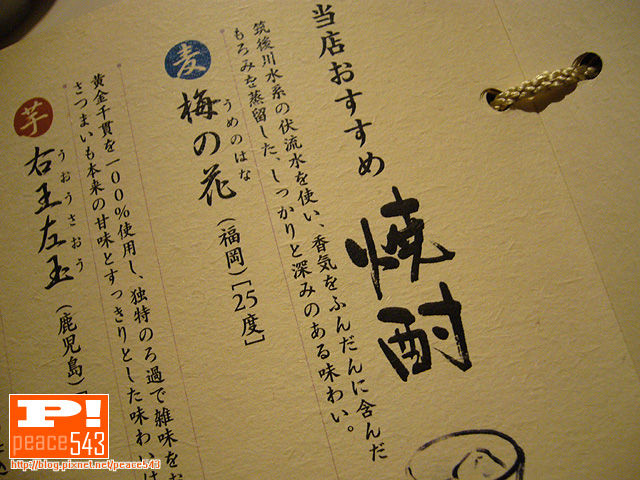 当店おすすめ
焼酎
麦
うめのはな
梅の花
(福岡)[25度]
筑後川水系の伏流水を使い、香気をふんだんに含んだ
もろみを蒸留した、しっかりと深みのある味わい。
芋
うおうさおう
右王左王
(鹿児島)[
黄金千貫を100%使用し、独特のろ過で雑味をお
さつまいも本来の甘味とすっきりとした味わいは
P!
peace543
http://blog.pixnet.net/peace543